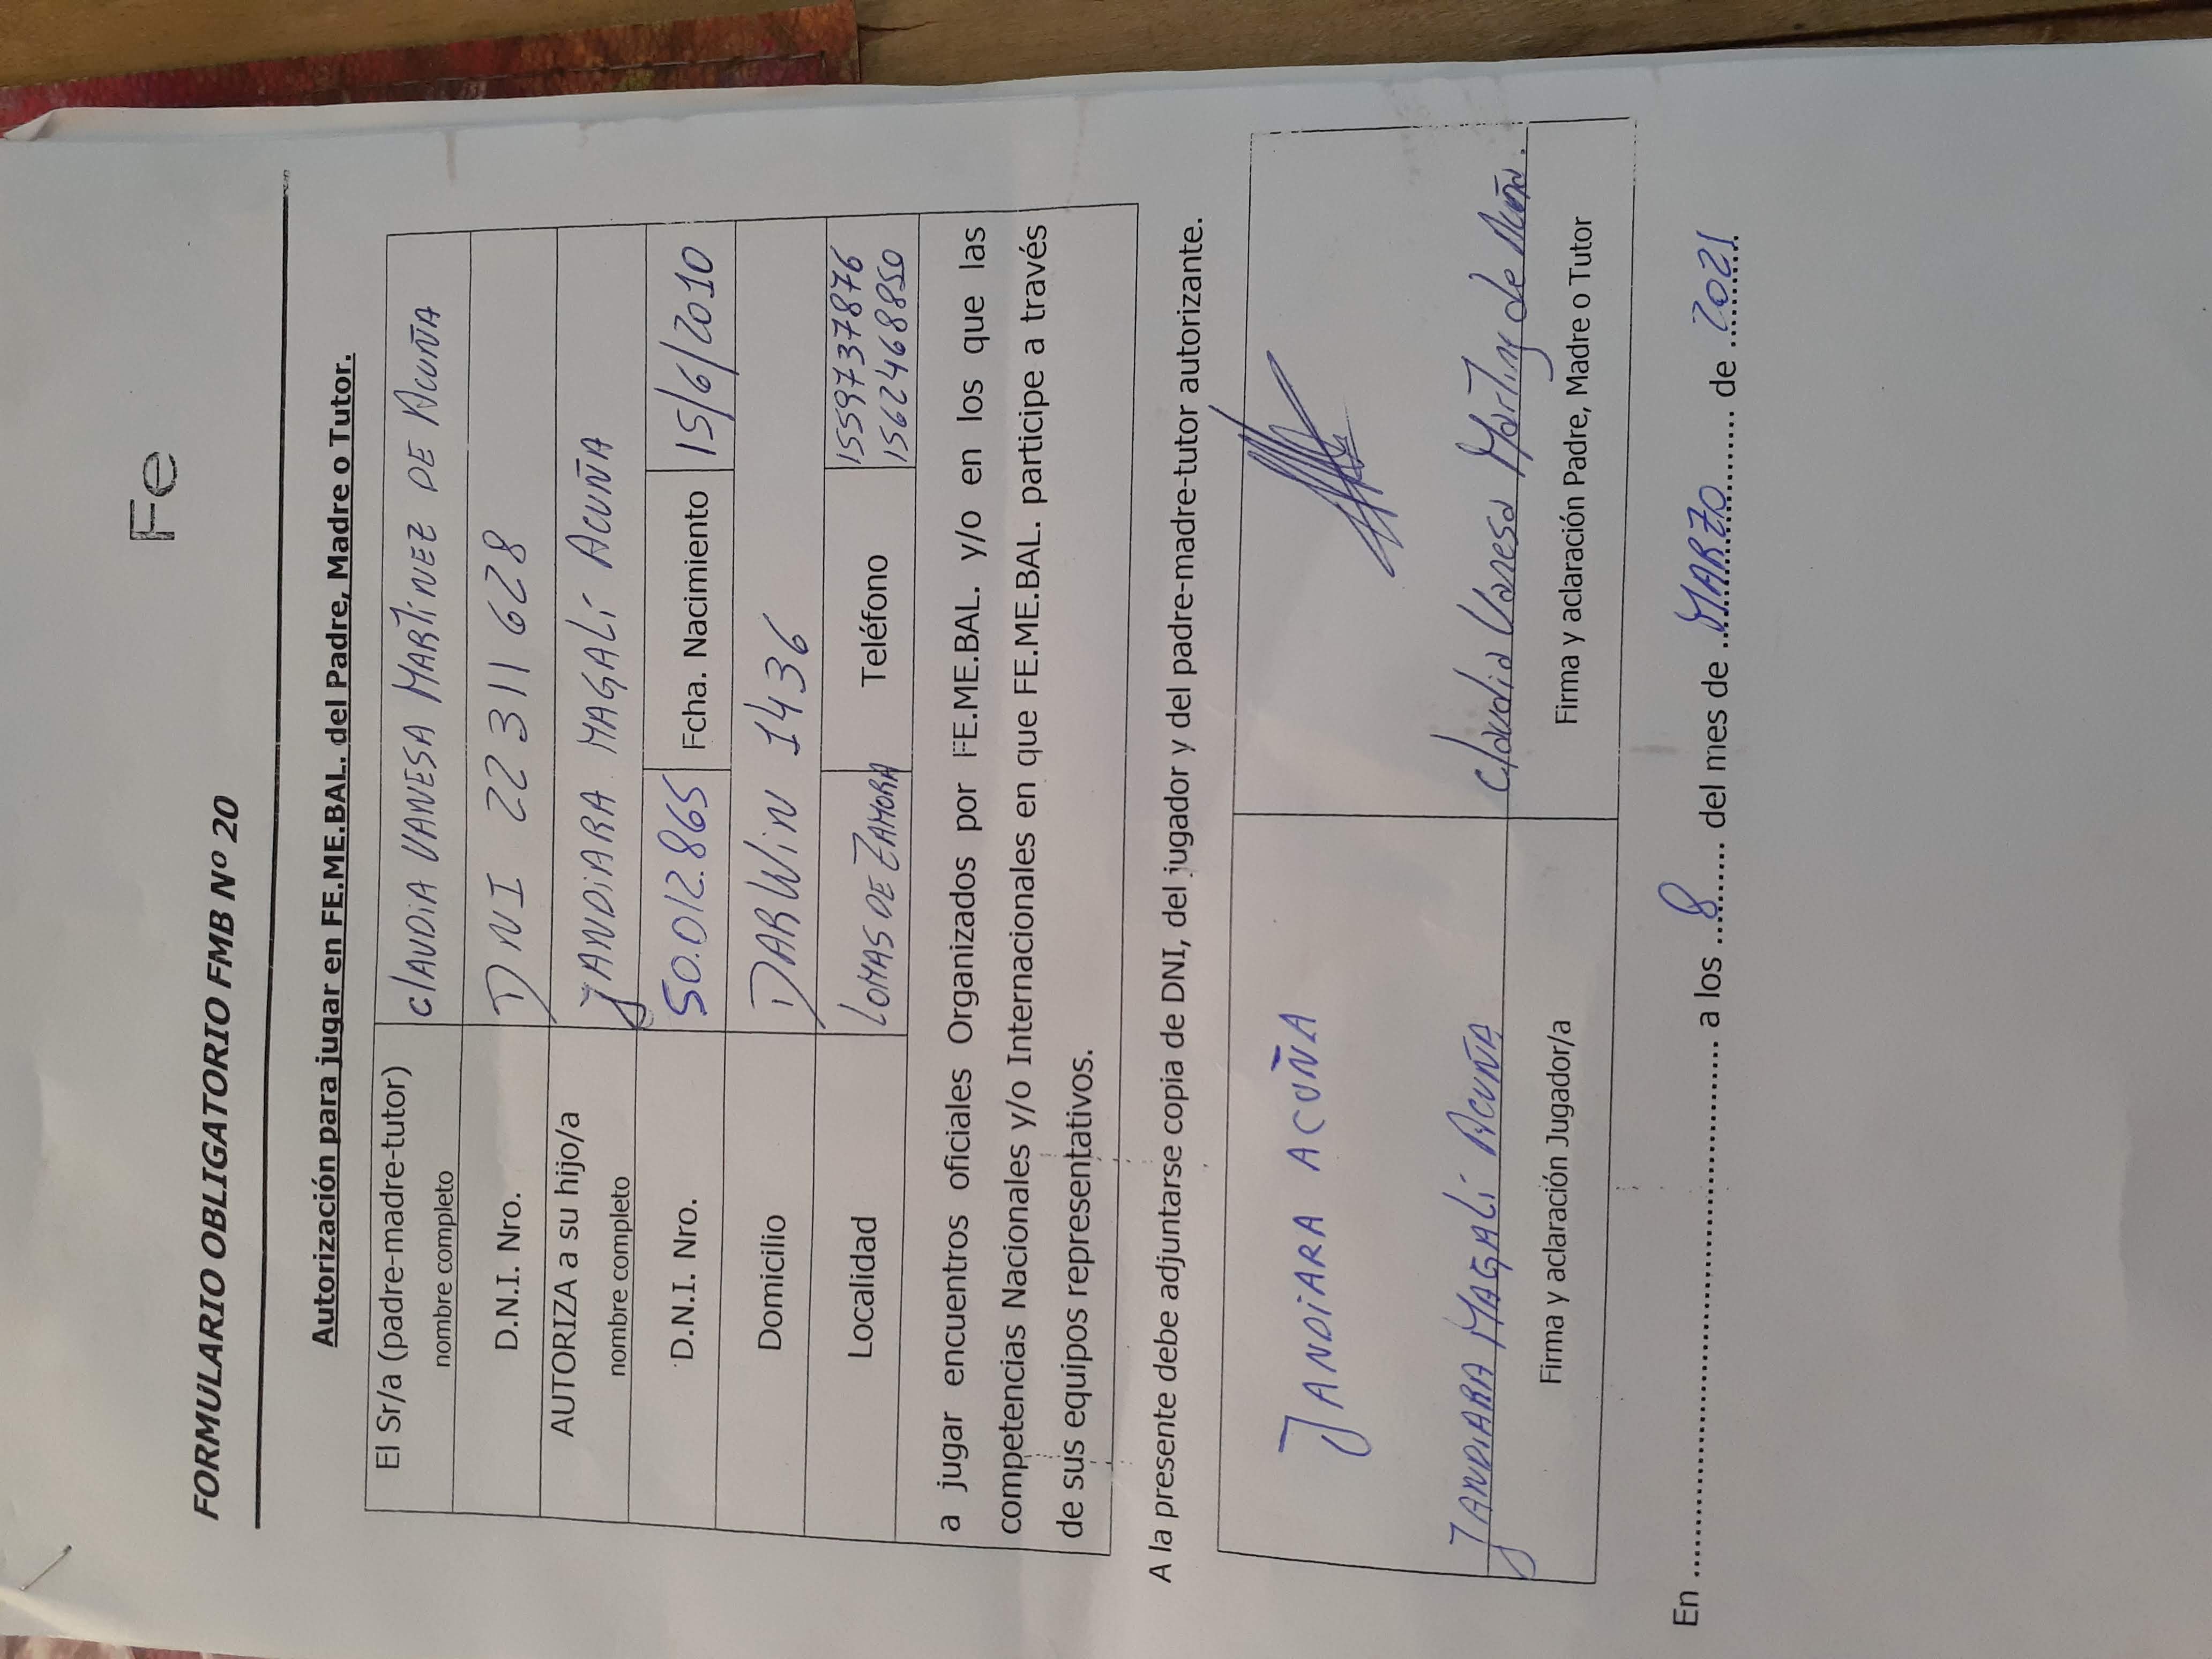 Fe
FORMULARIO OBLIGATORIO FMB Nº 20
Autorización para jugar en FE.ME.BAL. del Padre, Madre o Tutor.
El Sr/a (padre-madre-tutor) nombre completo ClAUDiA VANESA MARTiNEZ DE ACUÑA
D.N.I. Nro. DNI 22 311 628
AUTORIZA a su hijo/a nombre completo JANDiARA MAGALí ACUÑA
D.N.I. Nro. 50.012.865 Fcha. Nacimiento 15/6/2010
Domicilio DARWiN 1436
Localidad LOMAS DE ZAMORA Teléfono 1559737876
1562468850
a jugar encuentros oficiales Organizados por FE.ME.BAL. y/o en los que las
competencias Nacionales y/o Internacionales en que FE.ME.BAL. participe a través
de sus equipos representativos.
A la presente debe adjuntarse copia de DNI, del jugador y del padre-madre-tutor autorizante.
JANDiARA ACUÑA
JANDiARA MAGALí ACUÑA Claudia Vanesa Martinez de Acuña.
Firma y aclaración Jugador/a Firma y aclaración Padre, Madre o Tutor
En .......................................... a los ...8...... del mes de ...MARZO......... de ...2021...